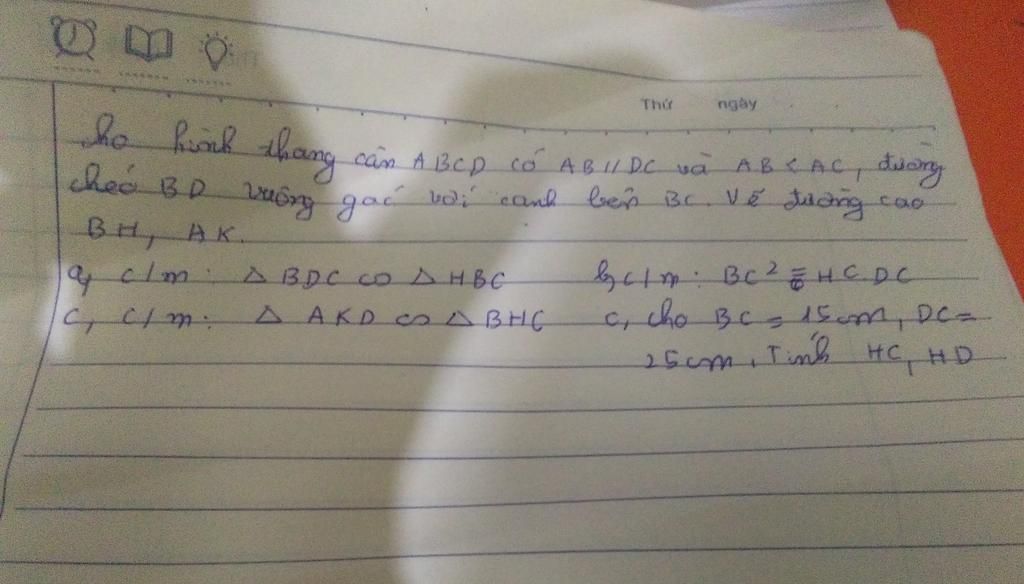 Thứ ngày
Cho hình thang cân ABCD có AB // DC và AB < AC, đường
chéo BD vuông góc với cạnh bên BC. Vẽ đường cao
BH, AK.
a, c/m: △ BDC ∽ △ HBC b, c/m: BC² = HC.DC
c, c/m: △ AKD ∽ △ BHC c, cho BC = 15cm, DC =
25cm. Tính HC, HD